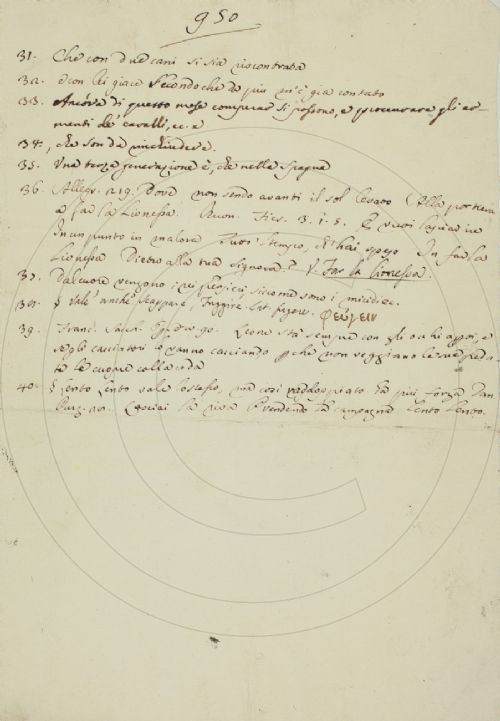 950
31. Che con due cani si sia riscontrata
32. e con lei giace Secondo che da più m'è già contato
33. Ancora di questo mese comperar si possono, e procurare gli ar-
menti de' cavalli, ec. e
34. che son da richiedere.
35. Una terza generazione è, che nelle Spagne
36. Allegr. 219. Dove non sendo avanti il sol levato Alla
a far la Lionessa. Buon. Fier. 3. 1. 5. E vuoi
In un punto in malora Tuo e t'hai speso In far la
Lionessa Dietro alla tua Signora? V. Far la lionessa.
37. Dal cuore vengono i più siccome sono i
38. § Vale anche Scappare, Fuggire. Lat. fugere. φεύγειν
39. Franc. Sacch. Op. div. 90. Leone sta sempre con gli occhi aperti, e
se gli cacciatori lo vanno cacciando perchè non veggiano le sue peda-
te le cuopre colla coda
40. § Lento Lento vale lo stesso, ma così raddoppiato ha più forza. Dan.
Purg. Lasciai la riva Prendendo la campagna Lento Lento.